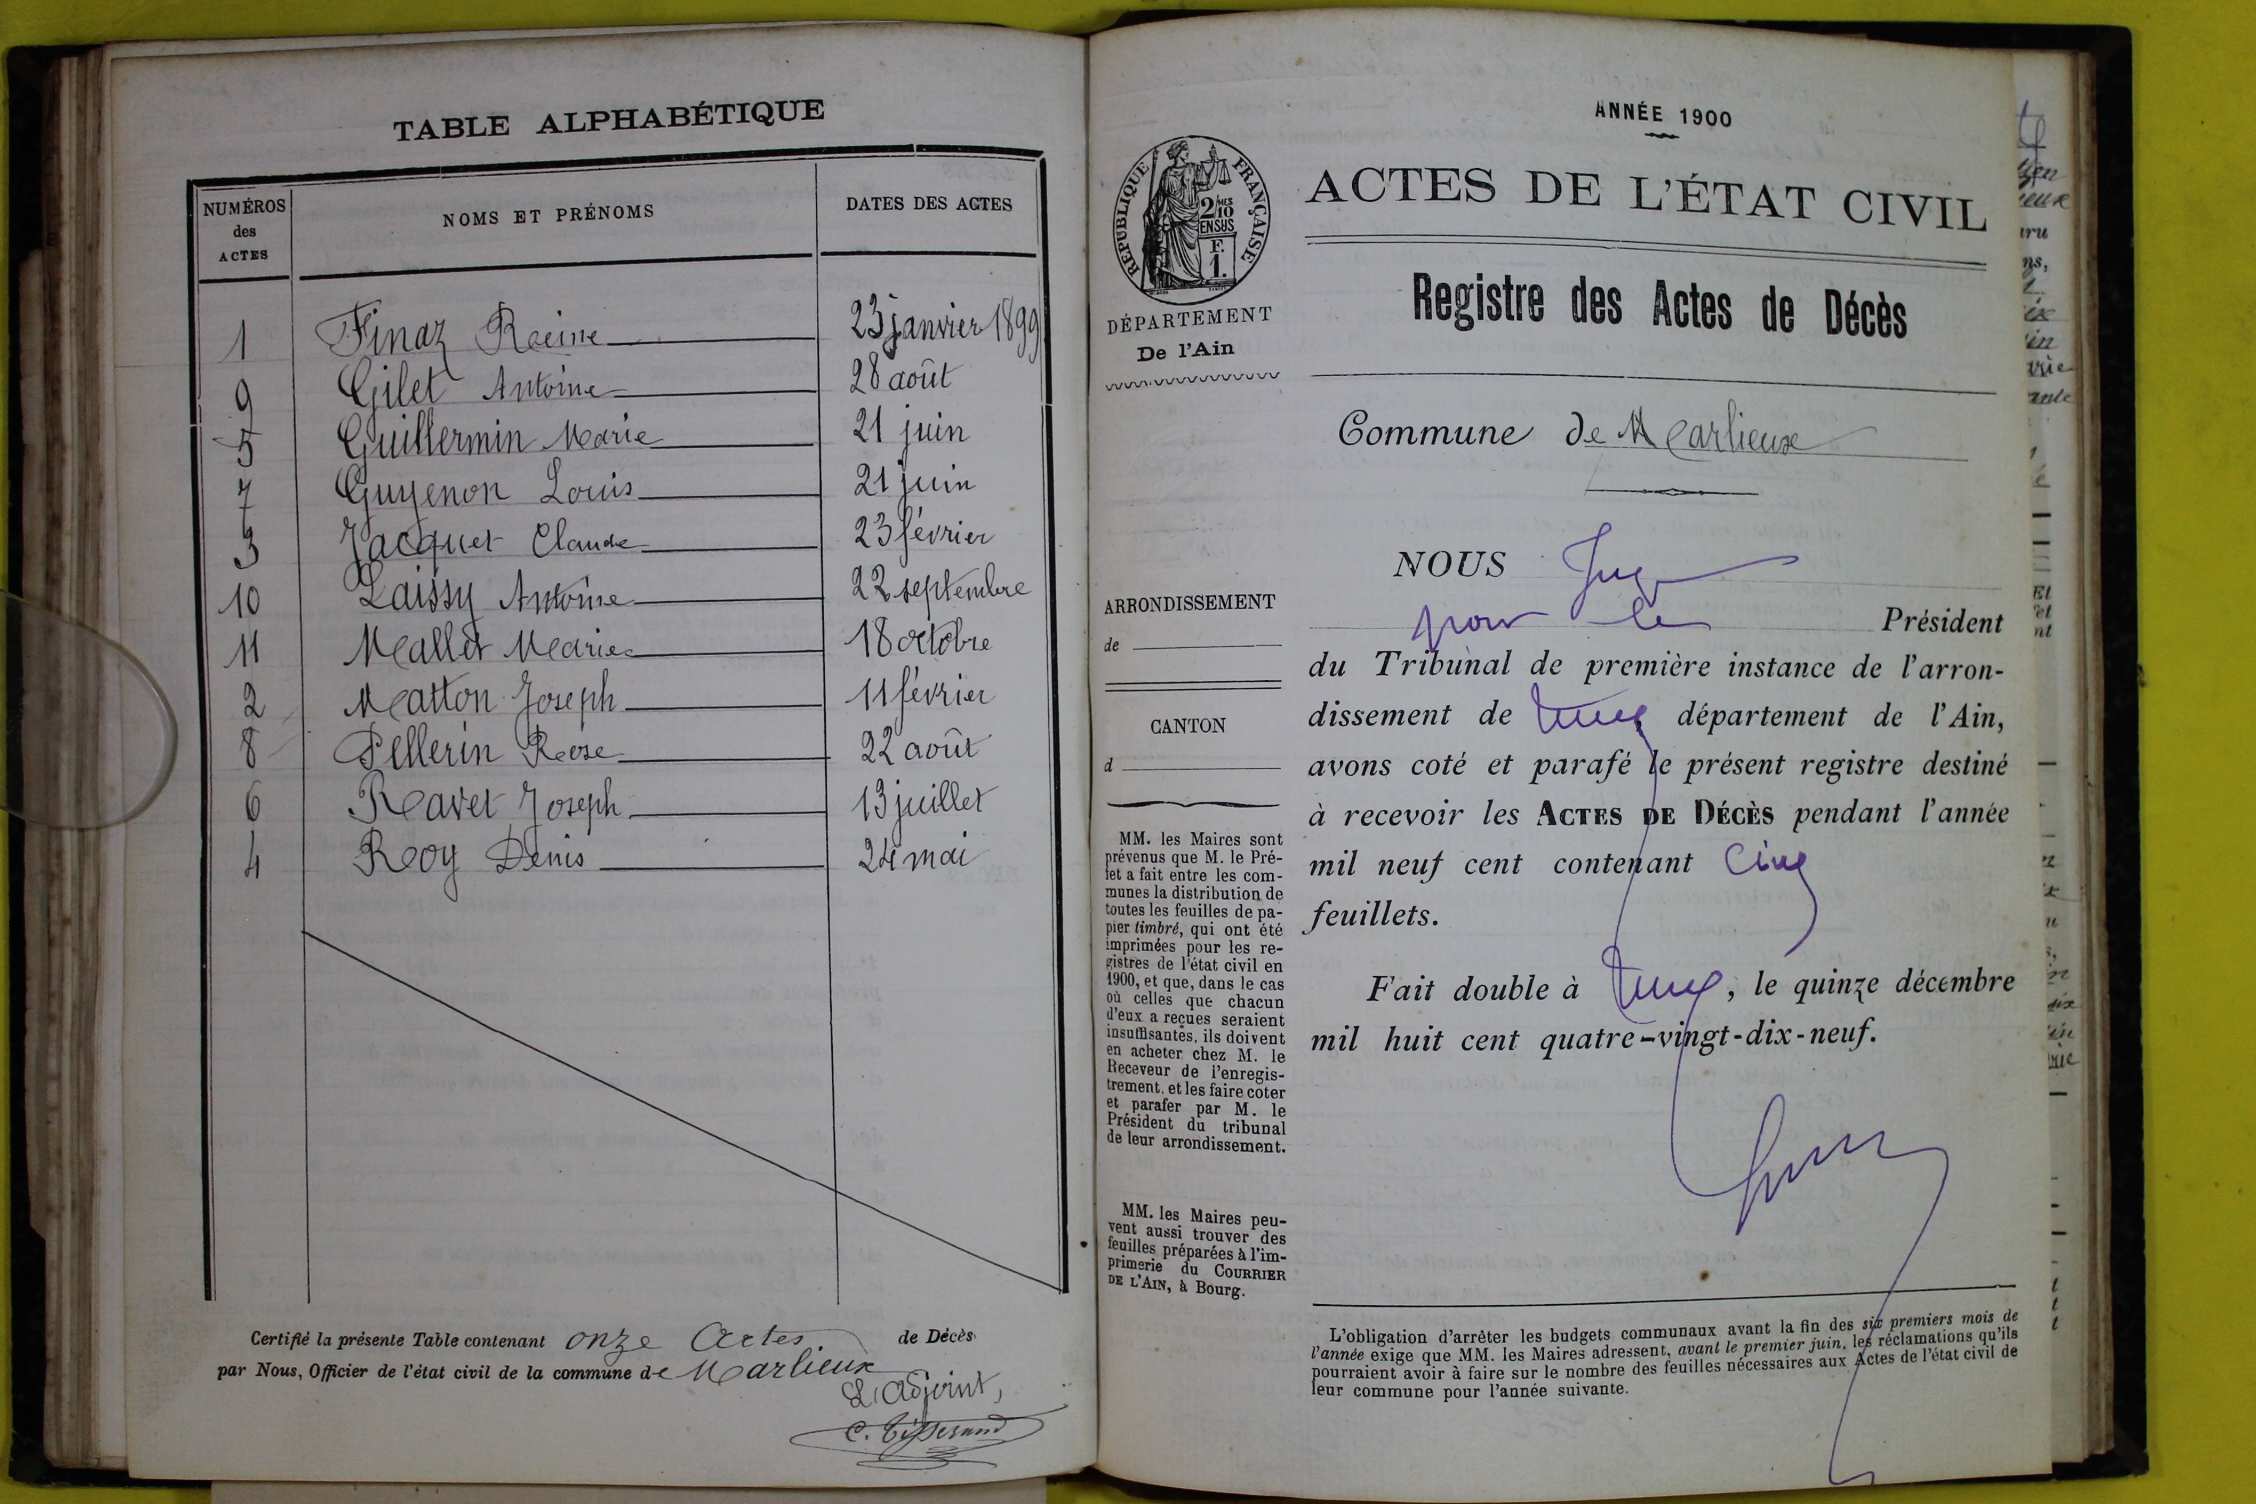 TABLE ALPHABÉTIQUE
NUMÉROS des ACTES
NOMS ET PRÉNOMS
DATES DES ACTES
1 Finaz Reine 23 janvier 1899
9 Gilet Antoine 28 août
5 Guillermin Marie 21 juin
7 Guyenon Louis 21 juin
3 Jacquet Claude 23 février
10 Laissy Antoine 22 septembre
11 Mallet Marie 18 octobre
2 Matton Joseph 11 février
8 Pellerin Rose 22 août
6 Ravet Joseph 13 juillet
4 Roy Denis 24 mai
Certifié la présente Table contenant onze Actes de Décès
par Nous, Officier de l'état civil de la commune de Marlieux
L'Adjoint,
C. Tisserand
ANNÉE 1900
RÉPUBLIQUE FRANÇAISE
2 MES
10
EN SUS
F.
1.
DÉPARTEMENT
De l'Ain
ARRONDISSEMENT
de
CANTON
d
MM. les Maires sont
prévenus que M. le Pré-
fet a fait entre les com-
munes la distribution de
toutes les feuilles de pa-
pier timbré, qui ont été
imprimées pour les re-
gistres de l'état civil en
1900, et que, dans le cas
où celles que chacun
d'eux a reçues seraient
insuffisantes, ils doivent
en acheter chez M. le
Receveur de l'enregis-
trement, et les faire coter
et parafer par M. le
Président du tribunal
de leur arrondissement.
MM. les Maires peu-
vent aussi trouver des
feuilles préparées à l'im-
primerie du COURRIER
DE L'AIN, à Bourg.
ACTES DE L'ÉTAT CIVIL
Registre des Actes de Décès
Commune de Marlieux
NOUS Juge
pour le Président
du Tribunal de première instance de l'arron-
dissement de département de l'Ain,
avons coté et parafé le présent registre destiné
à recevoir les ACTES DE DÉCÈS pendant l'année
mil neuf cent contenant Cinq
feuillets.
Fait double à , le quinze décembre
mil huit cent quatre-vingt-dix-neuf.
L'obligation d'arrêter les budgets communaux avant la fin des six premiers mois de
l'année exige que MM. les Maires adressent, avant le premier juin, les réclamations qu'ils
pourraient avoir à faire sur le nombre des feuilles nécessaires aux Actes de l'état civil de
leur commune pour l'année suivante.